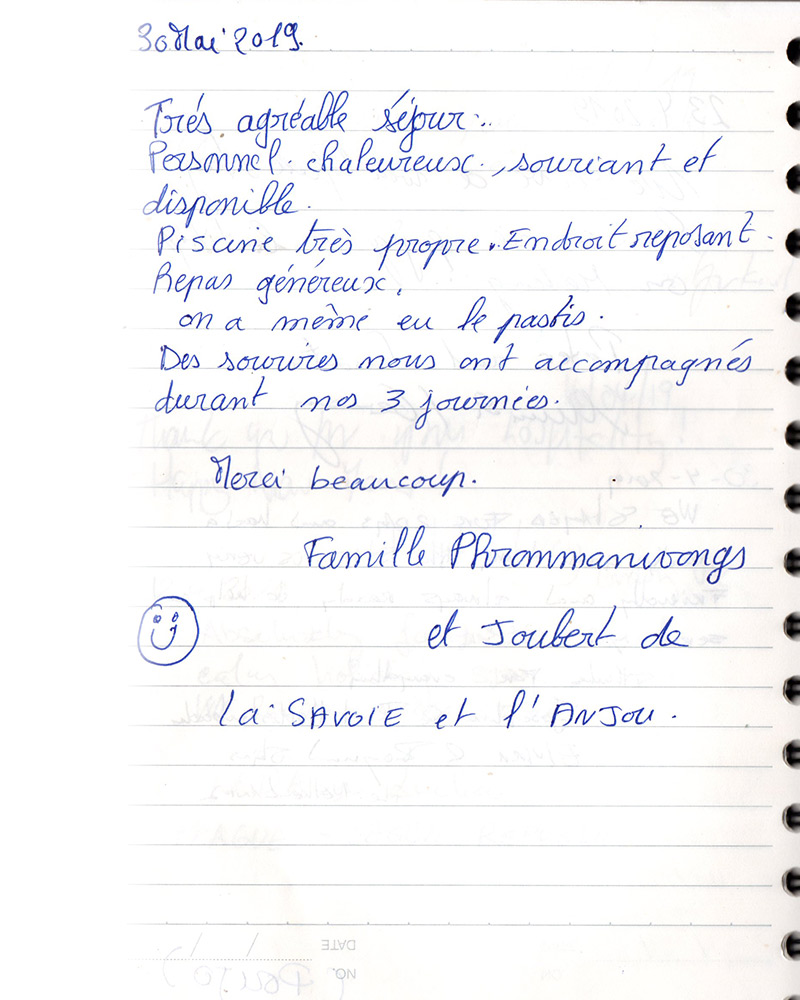 30 Mai 2019.
Trés agréable séjour..
Personnel. chaleureux., souriant et
disponible.
Piscine très propre. Endroit reposant.
Repas généreux.
on a même eu le pastis.
Des sourires nous ont accompagnés
durant nos 3 journées.
Merci beaucoup.
Famille Phrommanivongs
et Joubert de
la SAVOIE et l'ANJOU.
DATE
NO.